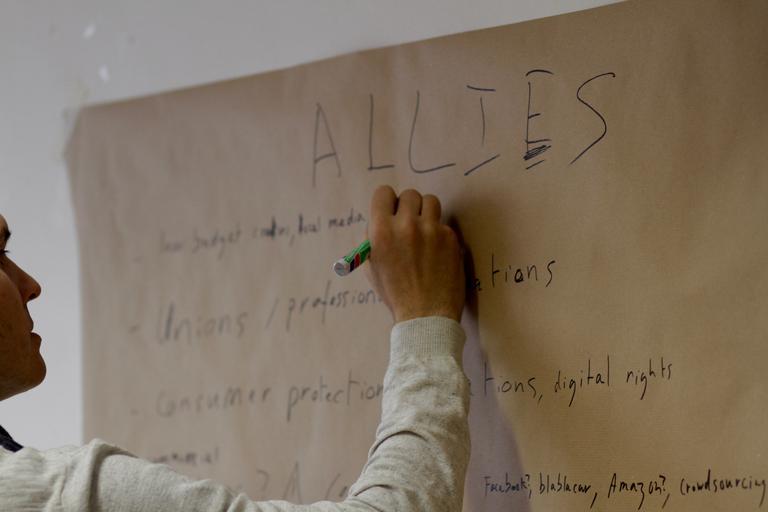 ALLIES
- low budget local media
- Unions / profession ations
- Consumer protection tions, digital rights
? A
Facebook?, blablacar, Amazon?, Crowdsourcing